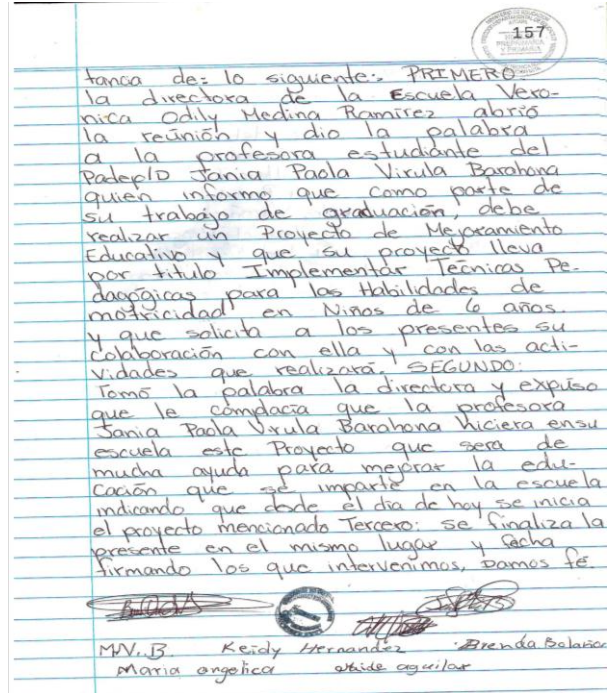 157
tancia de: lo siguiente: PRIMERO
la directora de la Escuela Vero-
nica Odily Medina Ramírez abrió
la reúnión y dio la palabra
a la profesora estudiante del
Padep/D Jania Paola Virula Barahona
quien informo que como parte de
su trabajo de graduación, debe
realizar un Proyecto de Mejoramiento
Educativo y que su proyecto lleva
por titulo Implementar Técnicas Pe-
dagógicas para las Habilidades de
motricidad en Niños de 6 años.
y que solicita a los presentes su
colaboración con ella y con las acti-
vidades que realizará. SEGUNDO:
Tomó la palabra la directora y expuso
que le complacia que la profesora
Jania Paola Virula Barahona hiciera ensu
escuela este Proyecto que sera de
mucha ayuda para mejorar la edu-
cación que se imparte en la escuela
indicando que desde el dia de hoy se inicia
el proyecto mencionado Tercero: se finaliza la
presente en el mismo lugar y fecha
firmando los que intervenimos, Damos fé
Keidy Hernandez Brenda Bolaños
Maria angelica aguilar